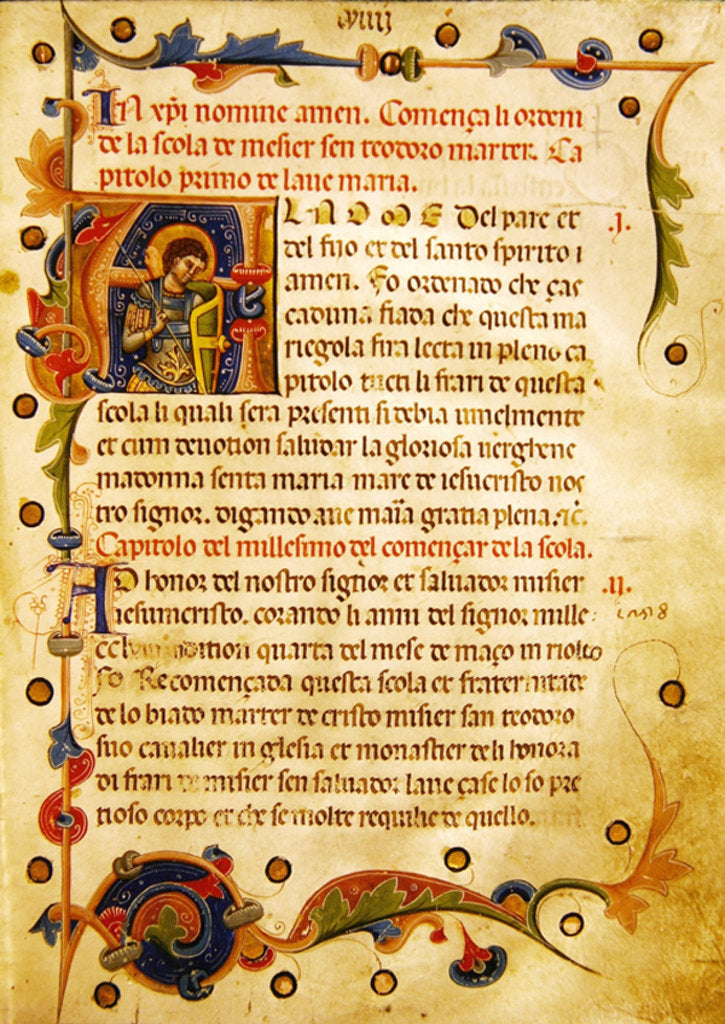 viiij
In xp̄i nomine amen. Comença li ordeni
de la scola de mesier sen teodoro marter. Ca
pitolo primo de laue maria.
AL NOME Del pare et .j.
del fiio et del santo spirito i
amen. Fo ordenado che ças
caduna fiada che questa ma
riegola sira lecta in pleno ca
pitolo tucti li frari de questa
scola li quali sera presenti si debia umelmente
et cum deuotion saludar la gloriosa uergene
madonna senta maria mare de iesucristo nos
tro signor. digando aue maīa gratia plena. ⁊c̄.
Capitolo del millesimo del començar de la scola.
AD honor del nostro signor et saluador misier .ij.
iesumcristo. corando li anni del signor mille
cclviij indition quarta del mese de março in riolto 1258
so Recomençada questa scola et fraternitade
de lo biado marter de cristo misier san teodoro
suo caualier in glesia et monastier de li honora
di frari de misier sen saluador laue çase lo so pre
tioso corpo et che se molte requilie de quello.